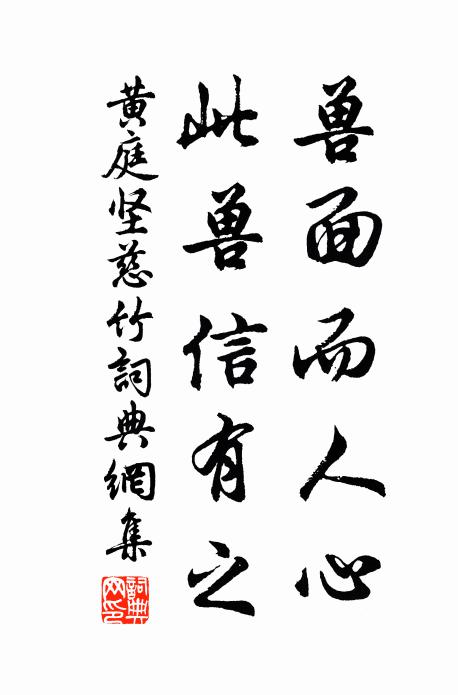 兽面而人心
此兽信有之
黄庭坚慈竹詞典網集
詞典网印